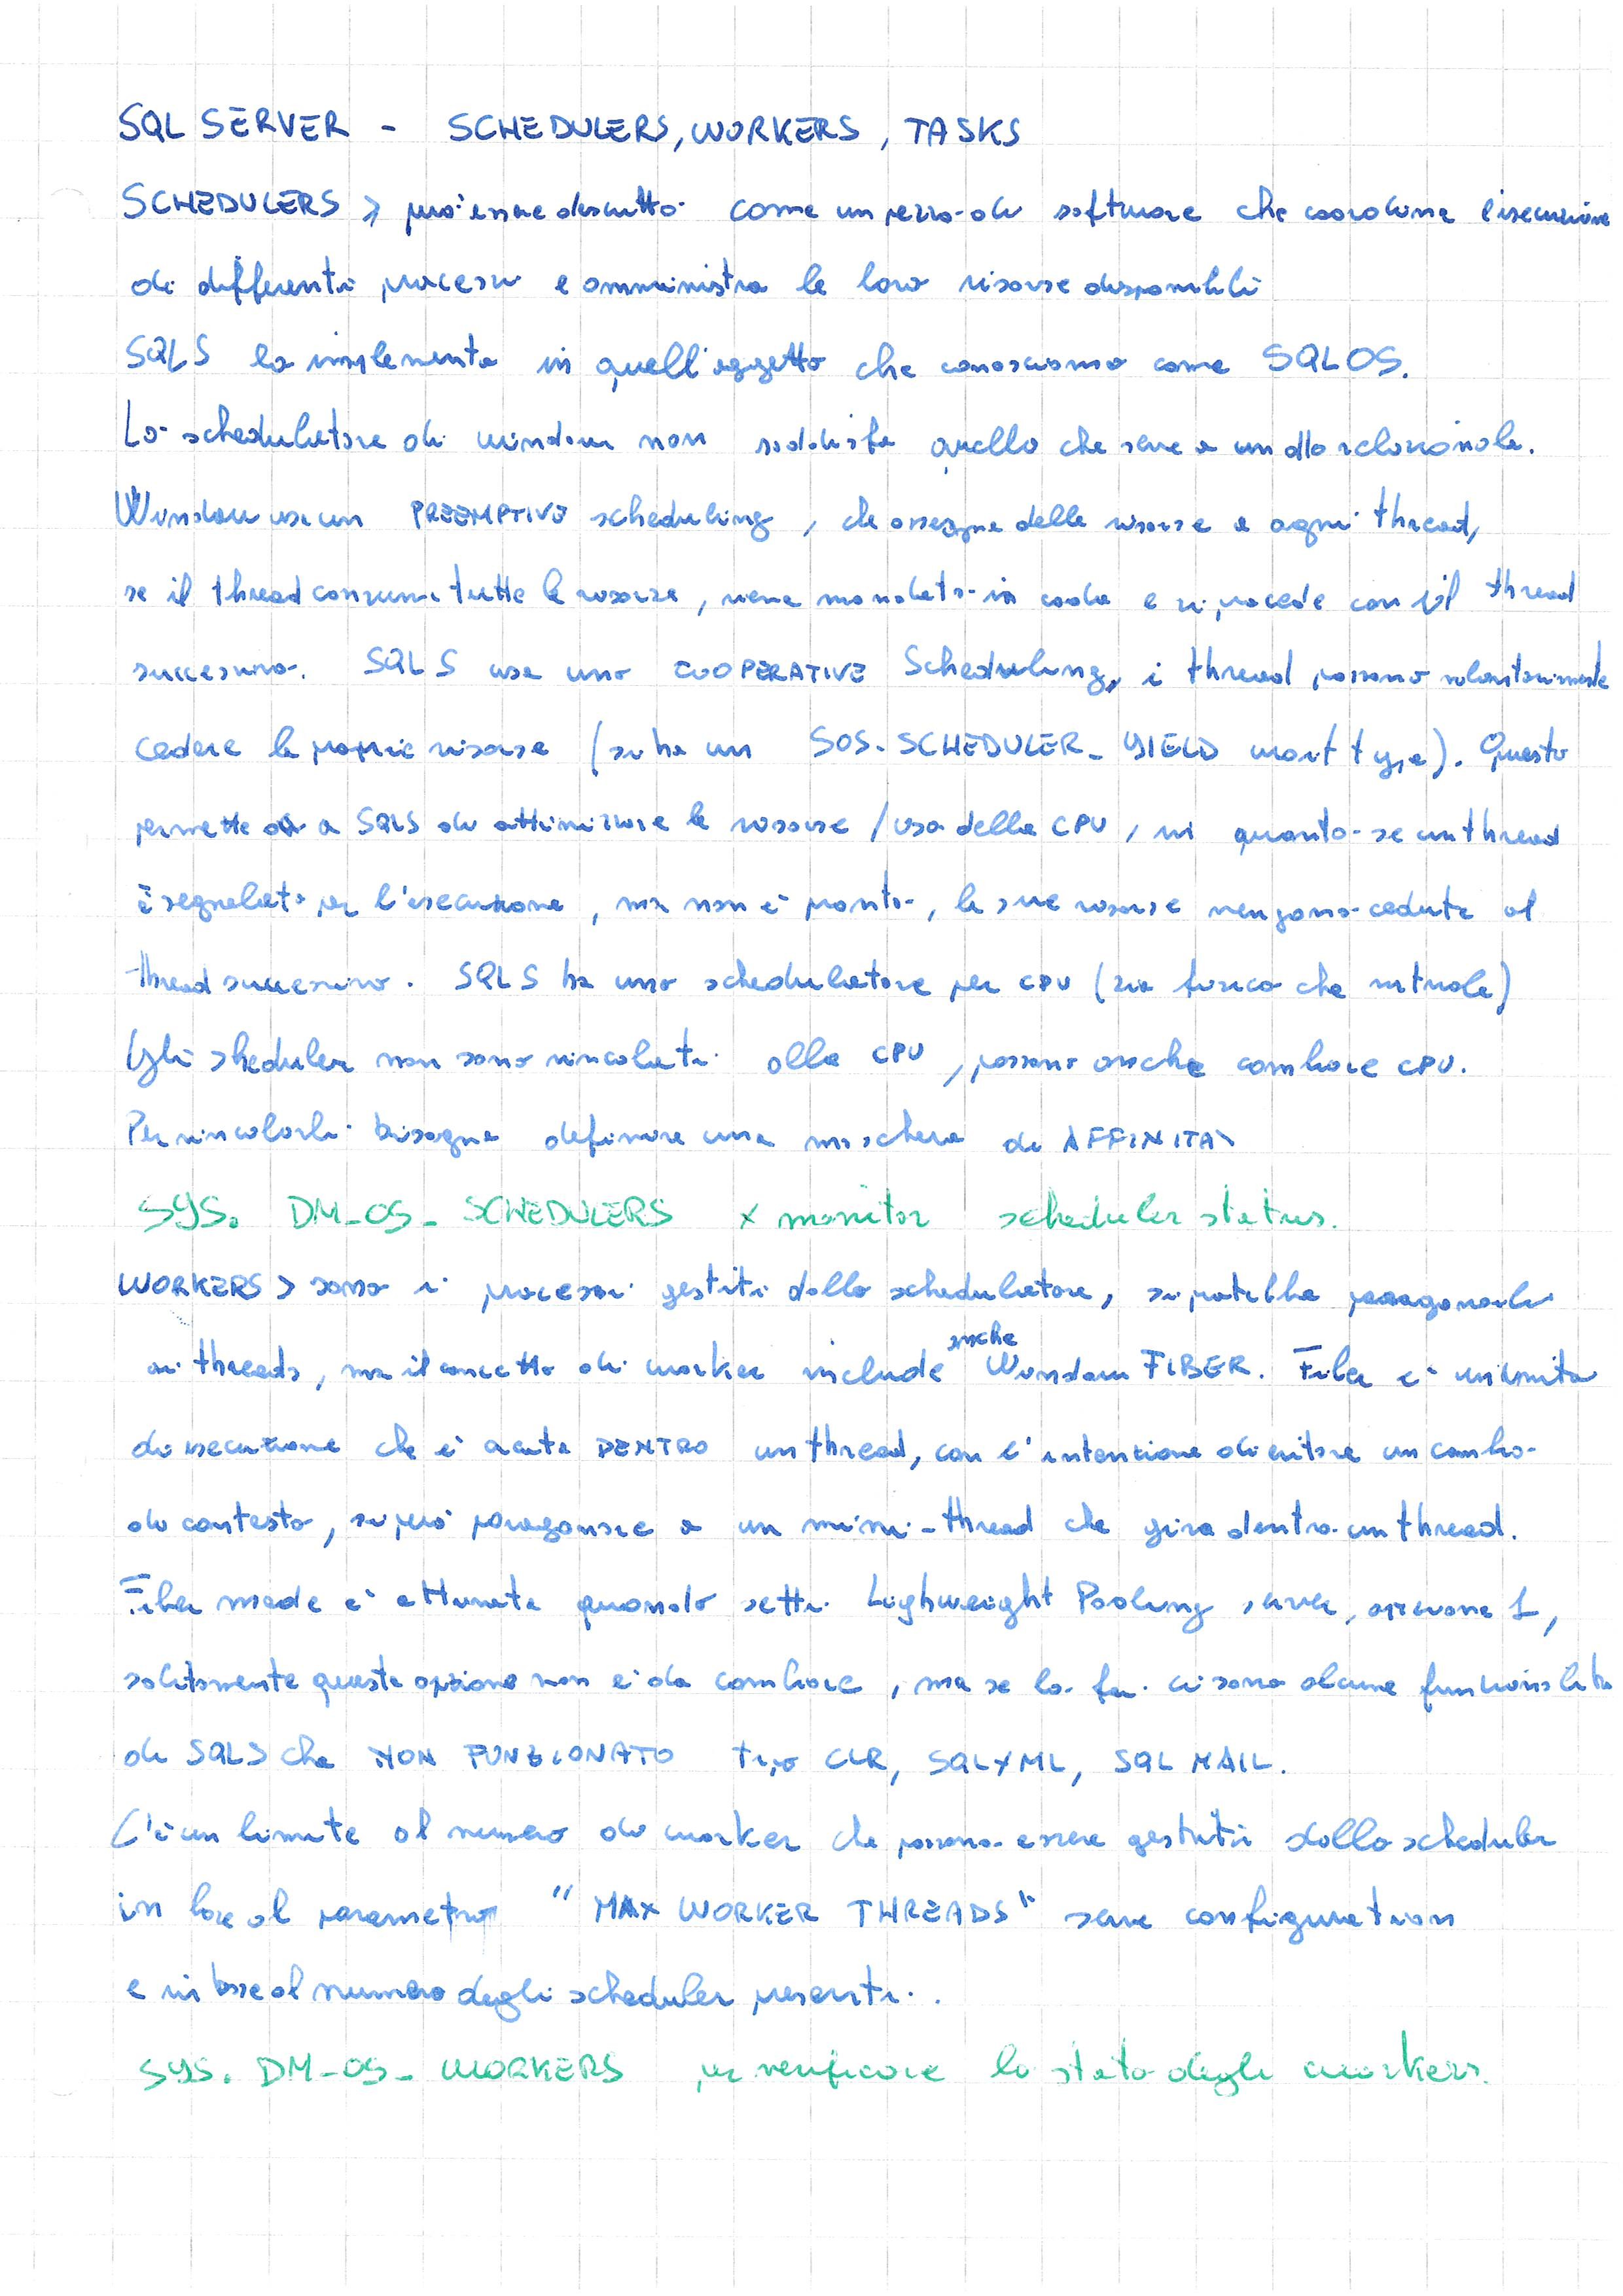 SQL SERVER - SCHEDULERS, WORKERS, TASKS
SCHEDULERS > può essere descritto come un pezzo di software che coordina l'esecuzione
di differenti processi e amministra le loro risorse disponibili
SQLS lo implementa in quell'oggetto che conosciamo come SQLOS.
Lo schedulatore di windows non soddisfa quello che serve a un db relazionale.
Windows usa un PREEMPTIVE scheduling, che assegna delle risorse a ogni thread,
se il thread consuma tutte le risorse, viene mandato in coda e si procede con il thread
successivo. SQLS usa uno COOPERATIVE Scheduling, i thread possono volontariamente
cedere le proprie risorse (si ha un SOS_SCHEDULER_YIELD wait type). Questo
permette a SQLS di ottimizzare le risorse / uso della CPU, in quanto se un thread
è segnalato per l'esecuzione, ma non è pronto, le sue risorse vengono cedute al
thread successivo. SQLS ha uno schedulatore per CPU (sia fisica che virtuale)
Gli sheduler non sono vincolati alla CPU, possono anche cambiare CPU.
Per vincolarli bisogna definire una maschera di AFFINITA'
SYS. DM_OS_SCHEDULERS x monitor scheduler status.
WORKERS > sono i processi gestiti dallo schedulatore, si potrebbe paragonarli
ai threads, ma il concetto di worker include anche Windows FIBER. Fiber è un'unità
di esecuzione che è creata DENTRO un thread, con l'intenzione di evitare un cambio
di contesto, si può paragonare a un mini-thread che gira dentro un thread.
Fiber mode è attivata quando setti Lighweight Pooling server, opzione 1,
solitamente questa opzione non è da cambiare, ma se lo fai ci sono alcune funzionalità
di SQLS che NON FUNZIONATO tipo CLR, SQLXML, SQL MAIL.
C'è un limite al numero di worker che possono essere gestiti dallo scheduler
in base al parametro "MAX WORKER THREADS" serve configuration
e in base al numero degli scheduler presenti.
SYS. DM_OS_WORKERS per verificare lo stato degli workers.